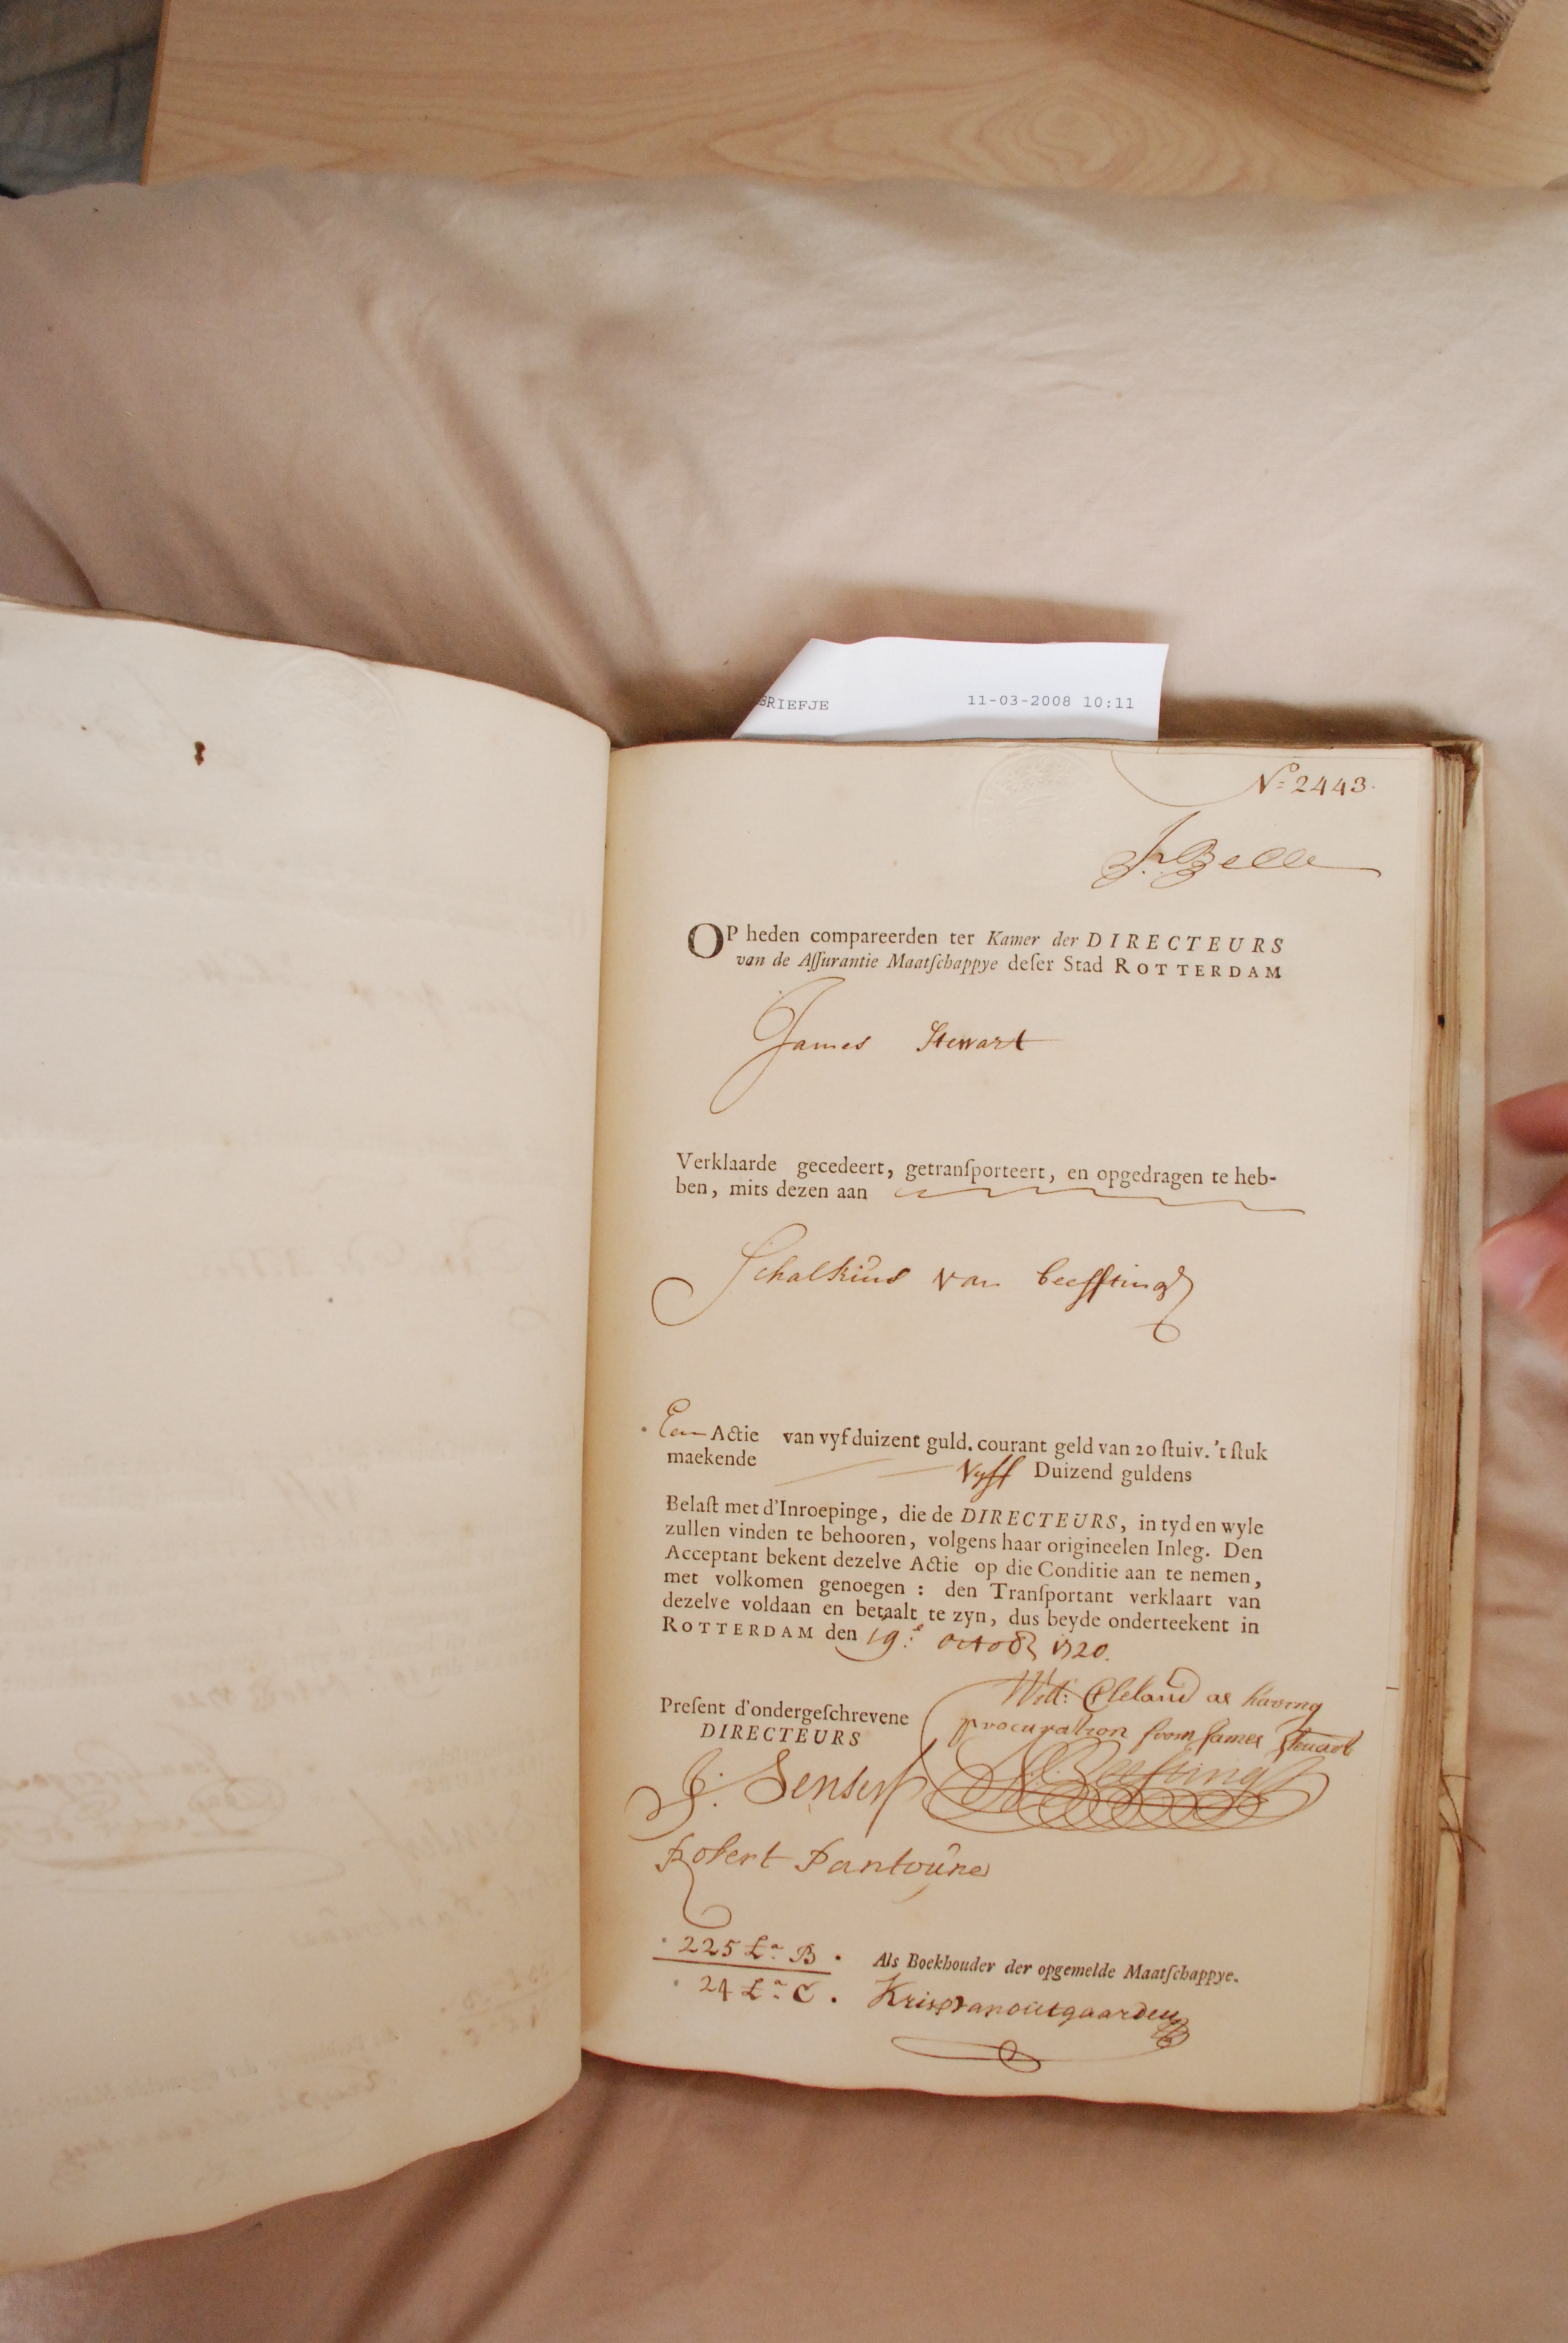 BRIEFJE 11-03-2008 10:11
No: 2443.
Belle
OP heden compareerden ter Kamer der DIRECTEURS
van de Aſſurantie Maatſchappye deſer Stad ROTTERDAM
James Stewart
Verklaarde gecedeert, getranſporteert, en opgedragen te heb-
ben, mits dezen aan
Schalkius van Beefting
Een Actie van vyf duizent guld. courant geld van 20 ſtuiv. 't ſtuk
maekende Vyff Duizend guldens
Belaſt met d'Inroepinge, die de DIRECTEURS, in tyd en wyle
zullen vinden te behooren, volgens haar origineelen Inleg. Den
Acceptant bekent dezelve Actie op die Conditie aan te nemen,
met volkomen genoegen : den Tranſportant verklaart van
dezelve voldaan en betaalt te zyn, dus beyde onderteekent in
ROTTERDAM den 19.e octob 1720.
Will: Cleland as having
procuration from James Steuart
Preſent d'ondergeſchrevene
DIRECTEURS
J. Senserf
Robert Pantoune
225 La B
24 La C.
Als Boekhouder der opgemelde Maatſchappye.
Kris vanoutgaarden